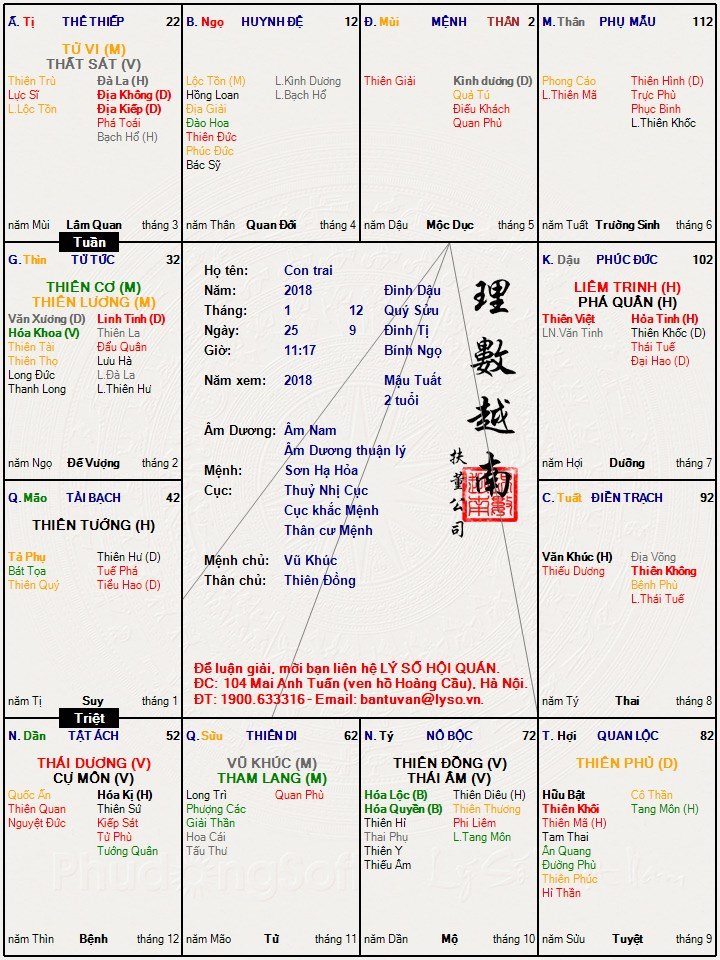 Ấ. Tị THÊ THIẾP 22
TỬ VI (M)
THẤT SÁT (V)
Thiên Trù Đà La (H)
Lực Sĩ Địa Không (D)
L.Lộc Tồn Địa Kiếp (D)
Phá Toái
Bạch Hổ (H)
năm Mùi Lâm Quan tháng 3
B. Ngọ HUYNH ĐỆ 12
Lộc Tồn (M) L.Kình Dương
Hồng Loan L.Bạch Hổ
Địa Giải
Đào Hoa
Thiên Đức
Phúc Đức
Bác Sỹ
năm Thân Quan Đới tháng 4
Đ. Mùi MỆNH THÂN 2
Thiên Giải Kình dương (D)
Quả Tú
Điếu Khách
Quan Phủ
năm Dậu Mộc Dục tháng 5
M. Thân PHỤ MẪU 112
Phong Cáo Thiên Hình (D)
L.Thiên Mã Trực Phù
Phục Binh
L.Thiên Khốc
năm Tuất Trường Sinh tháng 6
Tuần
G. Thìn TỬ TỨC 32
THIÊN CƠ (M)
THIÊN LƯƠNG (M)
Văn Xương (D) Linh Tinh (D)
Hóa Khoa (V) Thiên La
Thiên Tài Đẩu Quân
Thiên Thọ Lưu Hà
Long Đức L.Đà La
Thanh Long L.Thiên Hư
năm Ngọ Đế Vượng tháng 2
Họ tên: Con trai
Năm: 2018 Đinh Dậu
Tháng: 1 12 Quý Sửu
Ngày: 25 9 Đinh Tị
Giờ: 11:17 Bính Ngọ
Năm xem: 2018 Mậu Tuất
2 tuổi
Âm Dương: Âm Nam
Âm Dương thuận lý
Mệnh: Sơn Hạ Hỏa
Cục: Thuỷ Nhị Cục
Cục khắc Mệnh
Thân cư Mệnh
Mệnh chủ: Vũ Khúc
Thân chủ: Thiên Đồng
理數越南
扶董公司
Để luận giải, mời bạn liên hệ LÝ SỐ HỘI QUÁN.
ĐC: 104 Mai Anh Tuấn (ven hồ Hoàng Cầu), Hà Nội.
ĐT: 1900.633316 - Email: bantuvan@lyso.vn.
K. Dậu PHÚC ĐỨC 102
LIÊM TRINH (H)
PHÁ QUÂN (H)
Thiên Việt Hỏa Tinh (H)
LN.Văn Tinh Thiên Khốc (D)
Thái Tuế
Đại Hao (D)
năm Hợi Dưỡng tháng 7
Q. Mão TÀI BẠCH 42
THIÊN TƯỚNG (H)
Tả Phụ Thiên Hư (D)
Bát Tọa Tuế Phá
Thiên Quý Tiểu Hao (D)
năm Tị Suy tháng 1
C. Tuất ĐIỀN TRẠCH 92
Văn Khúc (H) Địa Võng
Thiếu Dương Thiên Không
Bệnh Phù
L.Thái Tuế
năm Tý Thai tháng 8
Triệt
N. Dần TẬT ÁCH 52
THÁI DƯƠNG (V)
CỰ MÔN (V)
Quốc Ấn Hóa Kị (H)
Thiên Quan Thiên Sứ
Nguyệt Đức Kiếp Sát
Tử Phù
Tướng Quân
năm Thìn Bệnh tháng 12
Q. Sửu THIÊN DI 62
VŨ KHÚC (M)
THAM LANG (M)
Long Trì Quan Phù
Phượng Các
Giải Thần
Hoa Cái
Tấu Thư
năm Mão Tử tháng 11
N. Tý NÔ BỘC 72
THIÊN ĐỒNG (V)
THÁI ÂM (V)
Hóa Lộc (B) Thiên Diêu (H)
Hóa Quyền (B) Thiên Thương
Thiên Hỉ Phi Liêm
Thai Phụ L.Tang Môn
Thiên Y
Thiếu Âm
năm Dần Mộ tháng 10
T. Hợi QUAN LỘC 82
THIÊN PHỦ (D)
Hữu Bật Cô Thần
Thiên Khôi Tang Môn (H)
Thiên Mã (H)
Tam Thai
Ân Quang
Đường Phù
Thiên Phúc
Hỉ Thần
năm Sửu Tuyệt tháng 9